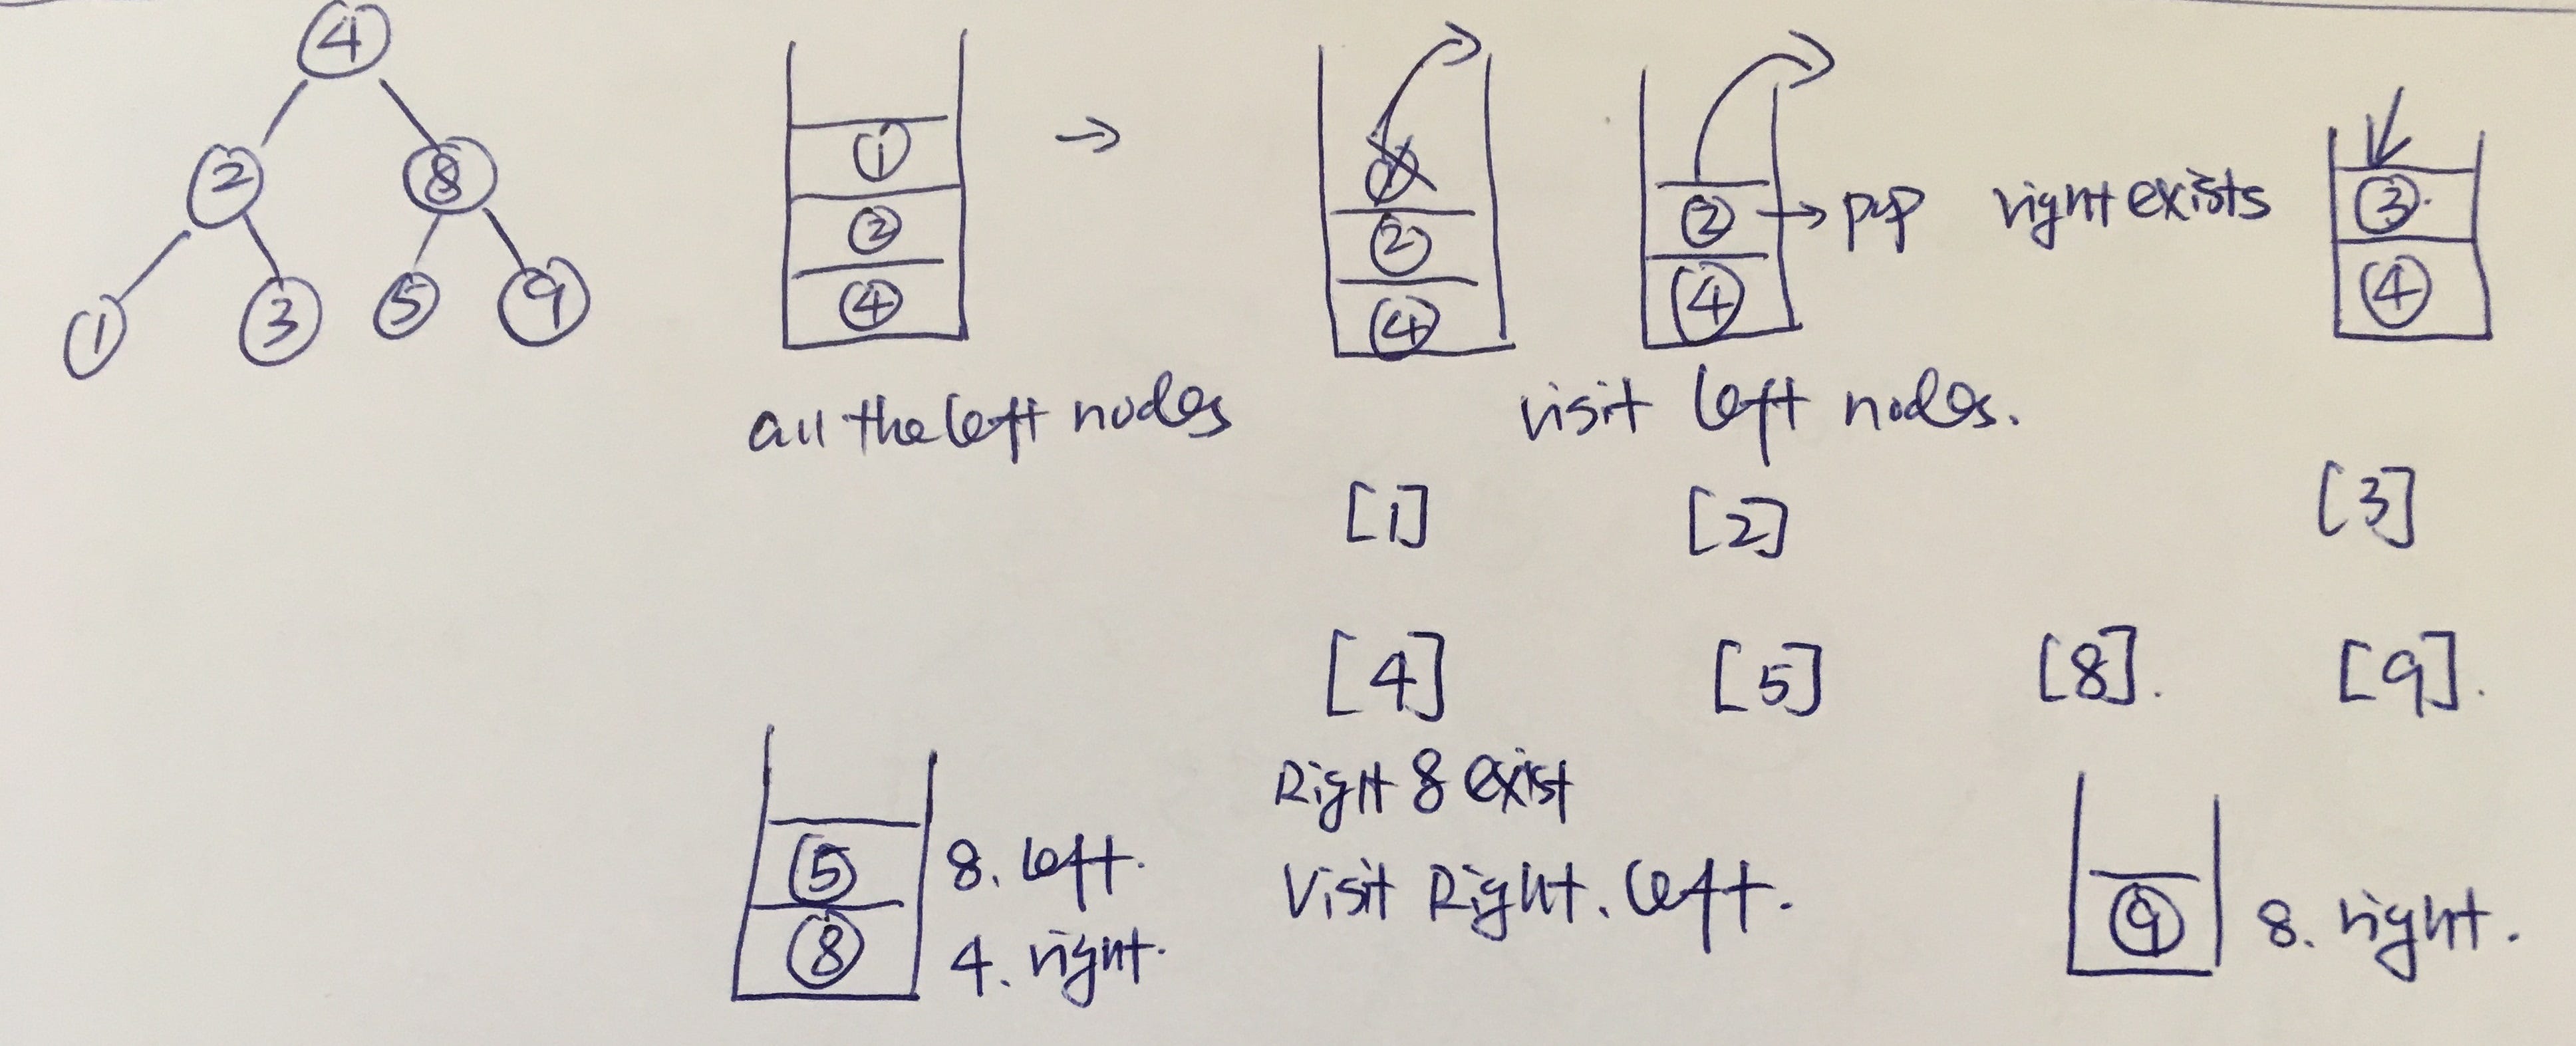 4
2 8
1 3 5 9
1
2
4
→
1
2
4
2 → pop right exists
4
3
4
all the left nodes
visit left nodes.
[1] [2] [3]
[4] [5] [8]. [9].
Right 8 exist
Visit Right. left.
5 8. left.
8 4. right.
9 8. right.